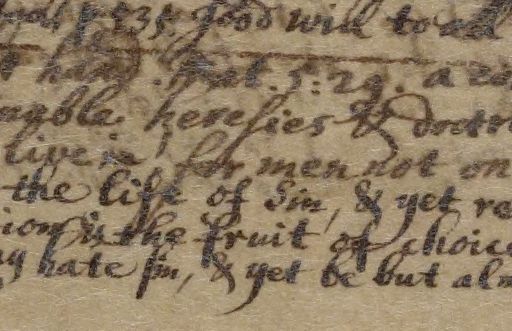 535. good will to all
hand. Mat. 5: 29. a
heresies & doctr
live in, for men not on
the life of Sin, & yet re
ion is the fruit of choice
hate sin, & yet be but alm